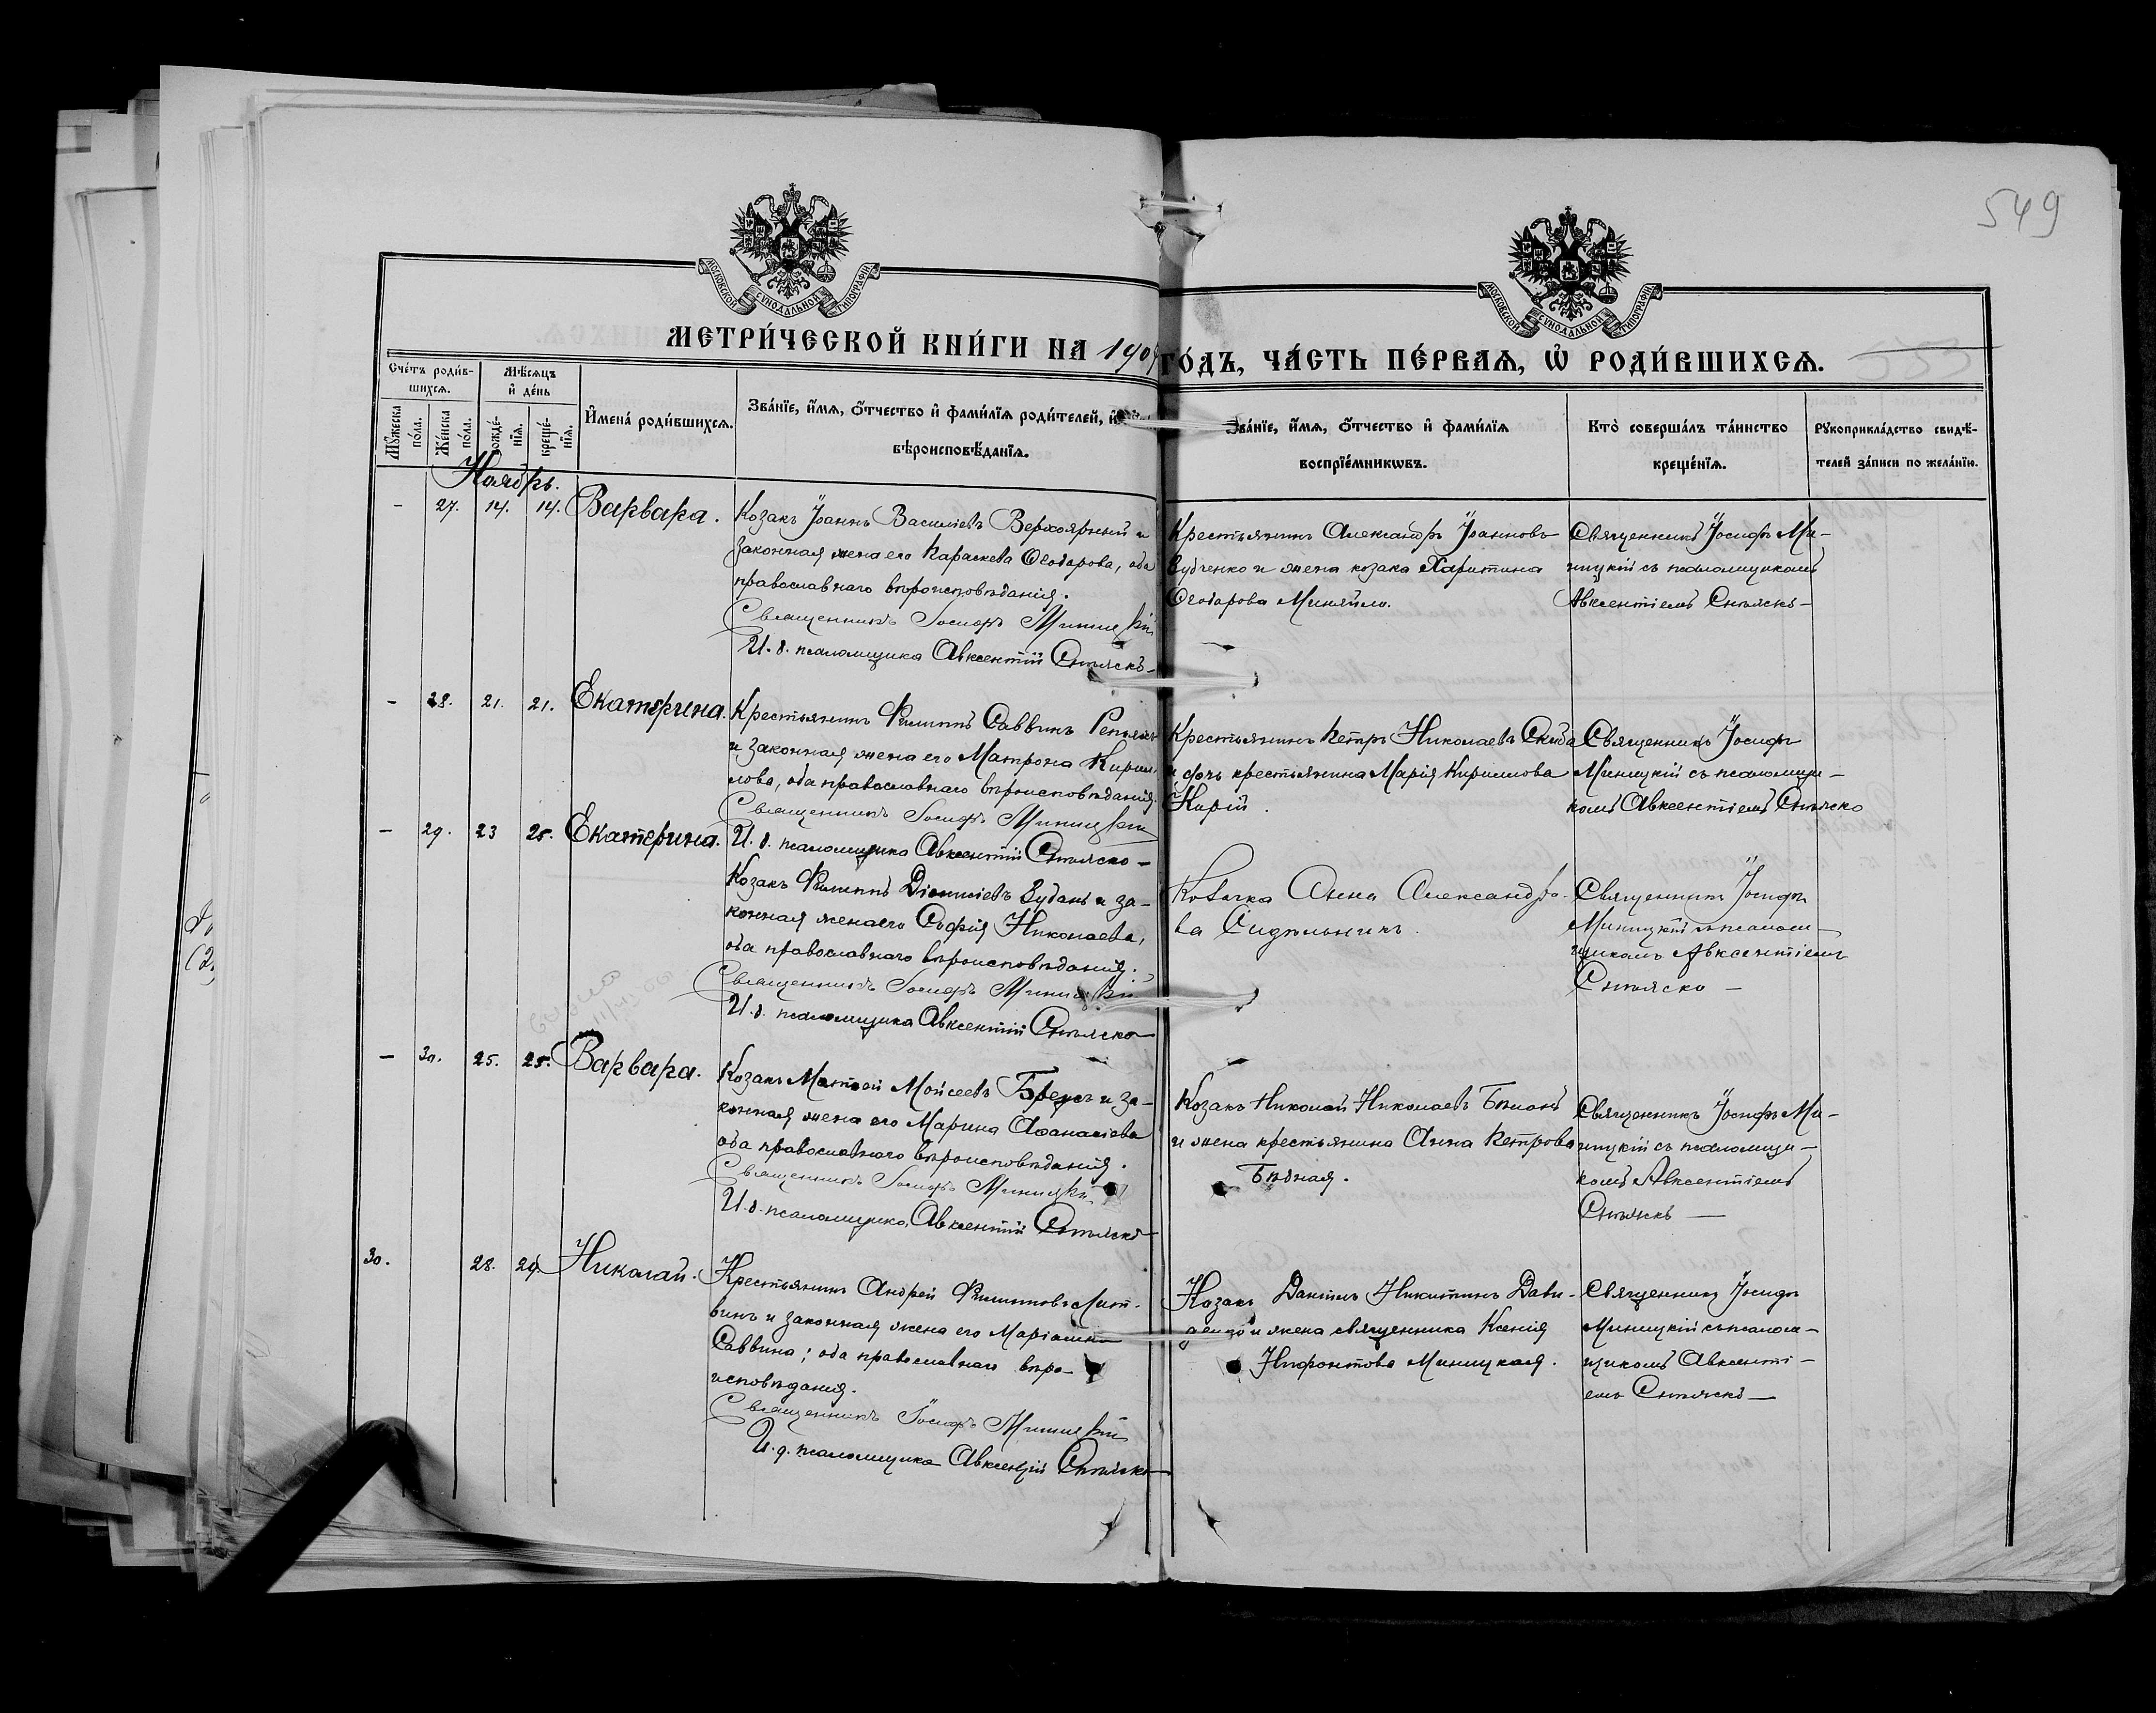 549
МОСКОВСКОЙ СѴНОДАЛЬНОЙ ТИПОГРАФІИ
МОСКОВСКОЙ СѴНОДАЛЬНОЙ ТИПОГРАФІИ
МЕТРИ́ЧЕСКОЙ КНИ́ГИ НА 1909 ГО́ДЪ, ЧА́СТЬ ПЕ́РВАѦ, Ѽ РОДИ́ВШИХСѦ.
Сче́тъ роди́в-
шихсѧ.
Мѣ́сѧцъ
и҆ де́нь
Мꙋ́жеска
по́ла.
Же́нска
по́ла.
рожде́-
нїѧ.
креще́-
нїѧ.
И҆мена̀ роди́вшихсѧ.
Зва́нїе, и҆́мѧ, ѻ҆́тчество и҆ фами́лїѧ роди́телей, и҆
вѣроисповѣ́данїѧ.
Зва́нїе, и҆́мѧ, ѻ҆́тчество и҆ фами́лїѧ
воспрїе́мникѡвъ.
Кто̀ соверша́лъ та́инство
креще́нїѧ.
Рꙋкоприкла́дство свидѣ́-
телей за́писи по жела́нїю.
Ноябрь.
- 27. 14. 14. Варвара.
Козакъ Іоаннъ Василіевъ Верхоярный и
законная жена его Параскева Ѳеодорова, оба
православнаго вѣроисповѣданія.
Священникъ Іосифъ Миницкій
И. д. псаломщика Авксентій
Крестьянинъ Александръ Іоанновъ
Зубченко и жена козака Харитина
Ѳеодорова Миняйло.
Священникъ Іосифъ Ми-
ницкій съ псаломщикомъ
Авксентіемъ
- 28. 21. 21. Екатерина.
Крестьянинъ Филиппъ Саввинъ
и законная жена его Матрона Кирил-
лова, оба православнаго вѣроисповѣданія.
Священникъ Іосифъ Миницкій
И. д. псаломщика Авксентій
Крестьянинъ Петръ Николаевъ Скиба
и дочь крестьянина Марія Кириллова
Священникъ Іосифъ
Миницкій съ псаломщи-
комъ Авксентіемъ
- 29. 23 25. Екатерина.
Козакъ Филиппъ Діонисіевъ Зубань и за-
конная жена его Софія Николаева,
оба православнаго вѣроисповѣданія.
Священникъ Іосифъ Миницкій
И. д. псаломщика Авксентій
Козачка Анна Александро-
ва Сидѣльникъ.
Священникъ Іосифъ
Миницкій съ псалом-
щикомъ Авксентіемъ
- 30. 25. 25. Варвара.
Козакъ Матѳей Моисеевъ Бреусъ и за-
конная жена его Марина Аѳанасіева
оба православнаго вѣроисповѣданія.
Священникъ Іосифъ Миницкій
И. д. псаломщика Авксентій
Козакъ Николай Николаевъ
и жена крестьянина Анна Петрова
Бѣдная.
Священникъ Іосифъ Ми-
ницкій съ псаломщи-
комъ Авксентіемъ
30. 28. 29. Николай.
Крестьянинъ Андрей Филипповъ Лит-
винъ и законная жена его Маріамна
Саввина; оба православнаго вѣро-
исповѣданія.
Священникъ Іосифъ Миницкій
И. д. псаломщика Авксентій
Козакъ Даніилъ Никитинъ Дави-
денко и жена священника Ксенія
Нифонтова Миницкая.
Священникъ Іосифъ
Миницкій съ псалом-
щикомъ Авксенті-
емъ